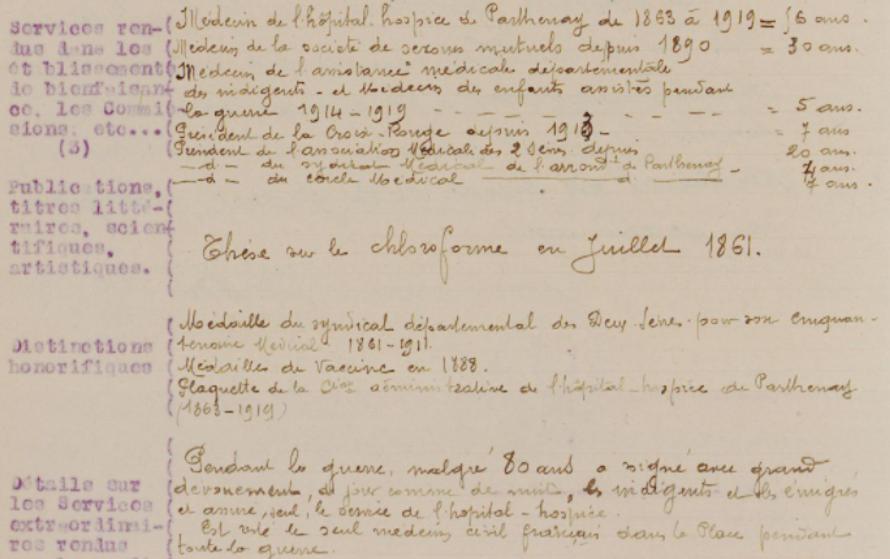 Services ren-
dus dans les
ét blissement
de bienfaisan
ce, les Commi
sions, etc...
(3)
Médecin de l'hôpital-hospice de Parthenay de 1863 à 1919 = 56 ans.
Médecin de la société de secours mutuels depuis 1890 = 30 ans.
Médecin de l'assistance médicale départementale
des indigents - et Médecin des enfants assistés pendant
la guerre 1914-1919 - - - - - - - = 5 ans.
Président de la Croix-Rouge depuis 1913 - = 7 ans
Président de l'association Médicale des 2 Sèvres depuis 20 ans.
-d- du syndicat Médical de l'arrondt de Parthenay - 4 ans.
-d- du cercle Médical d 7 ans.
Public tions,
titres litté-
raires, scien
tifiques,
artistiques.
Thèse sur le chloroforme en Juillet 1861.
Distinctions
honorifiques
Médaille du syndical départemental des Deux-Sèvres pour son cinquan-
tenaire Médical 1861-1911.
Médailles de Vaccine en 1888.
Plaquette de la Cion administrative de l'hôpital-hospice de Parthenay
(1863-1919)
Détails sur
les Services
extr ordinai-
res rendus
Pendant la guerre, malgré 80 ans a signé avec grand
dévouement, de jour comme de nuit, les indigents et les émigrés
et assuré, seul, le service de l'hôpital-hospice.
Est resté le seul médecin civil français dans la Place pendant
toute la guerre.